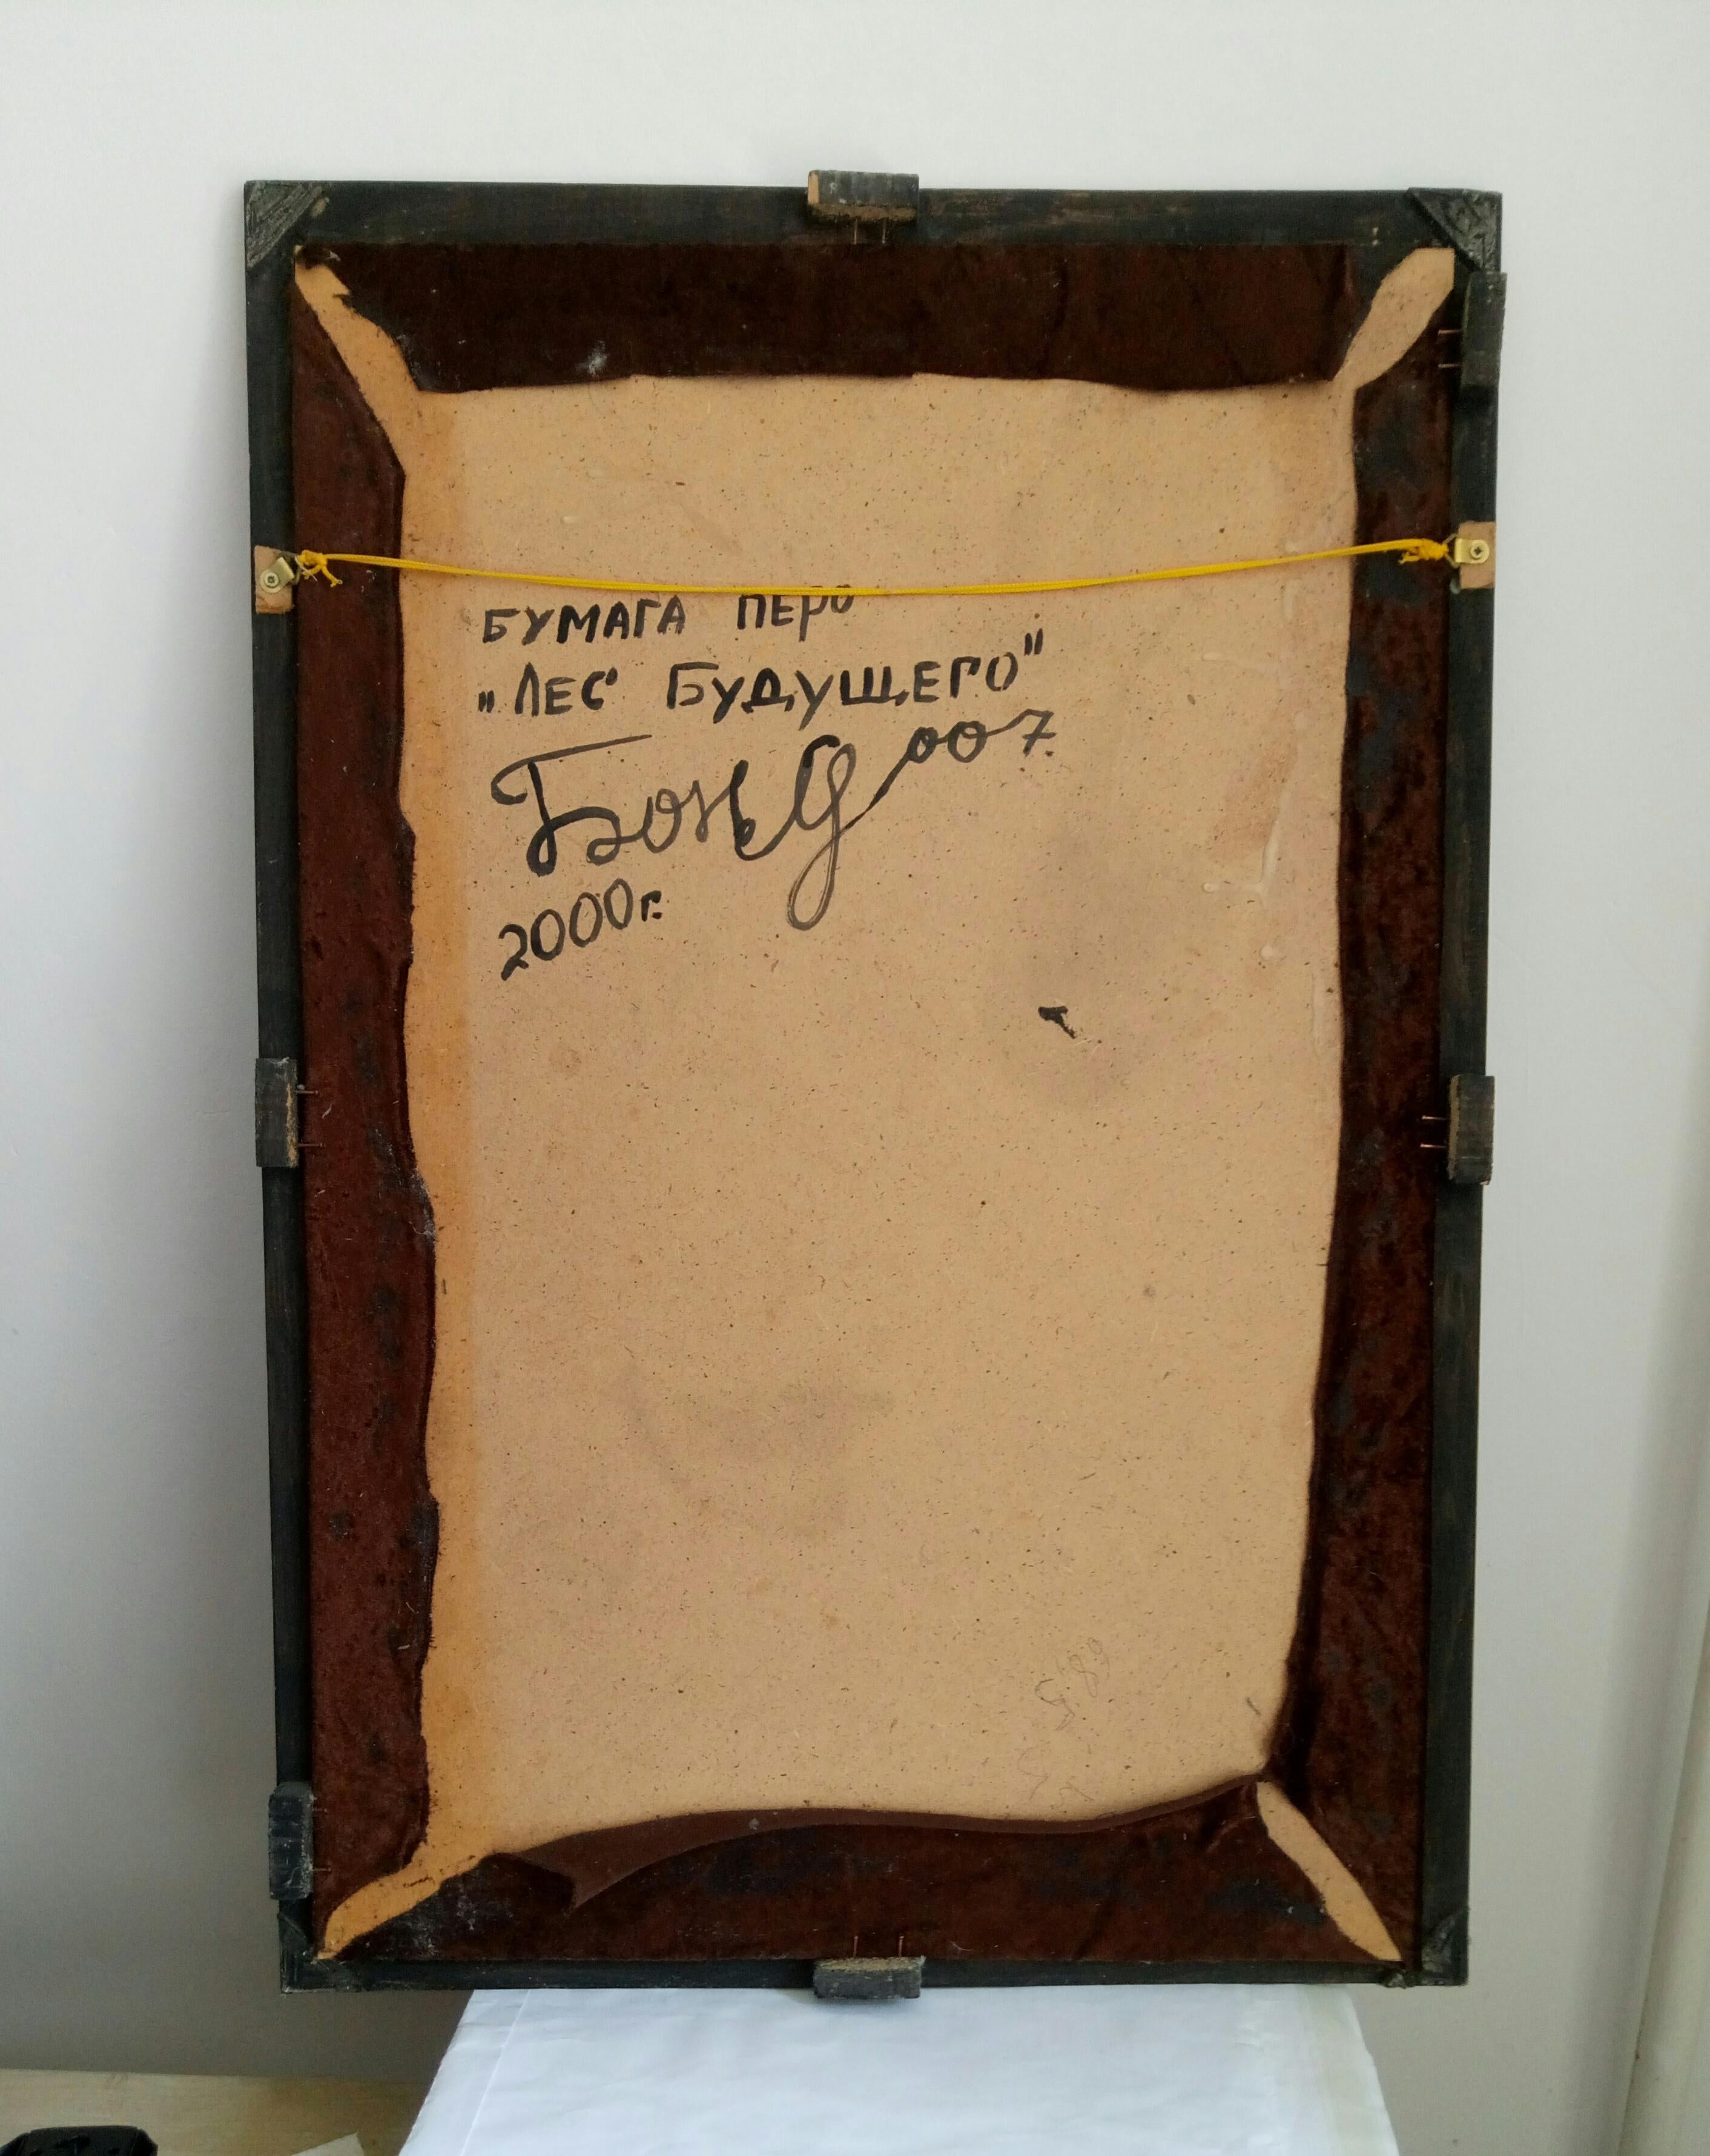 БУМАГА ПЕРО
„ЛЕС БУДУЩЕГО"
Бонд 007.
2000г.